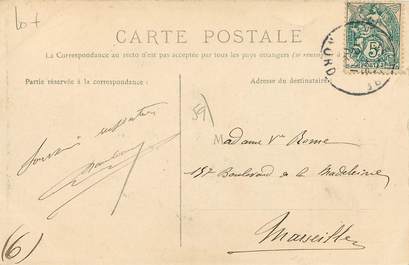 lot
CARTE POSTALE
(La Correspondance au recto n'est pas acceptée par tous les pays étrangers (se renseigner
Partie réservée à la correspondance :
Adresse du destinataire
59
Souvenir
Madame Vve
15 Boulevard de la Madeleine
Marseille
(6)
5
NORD